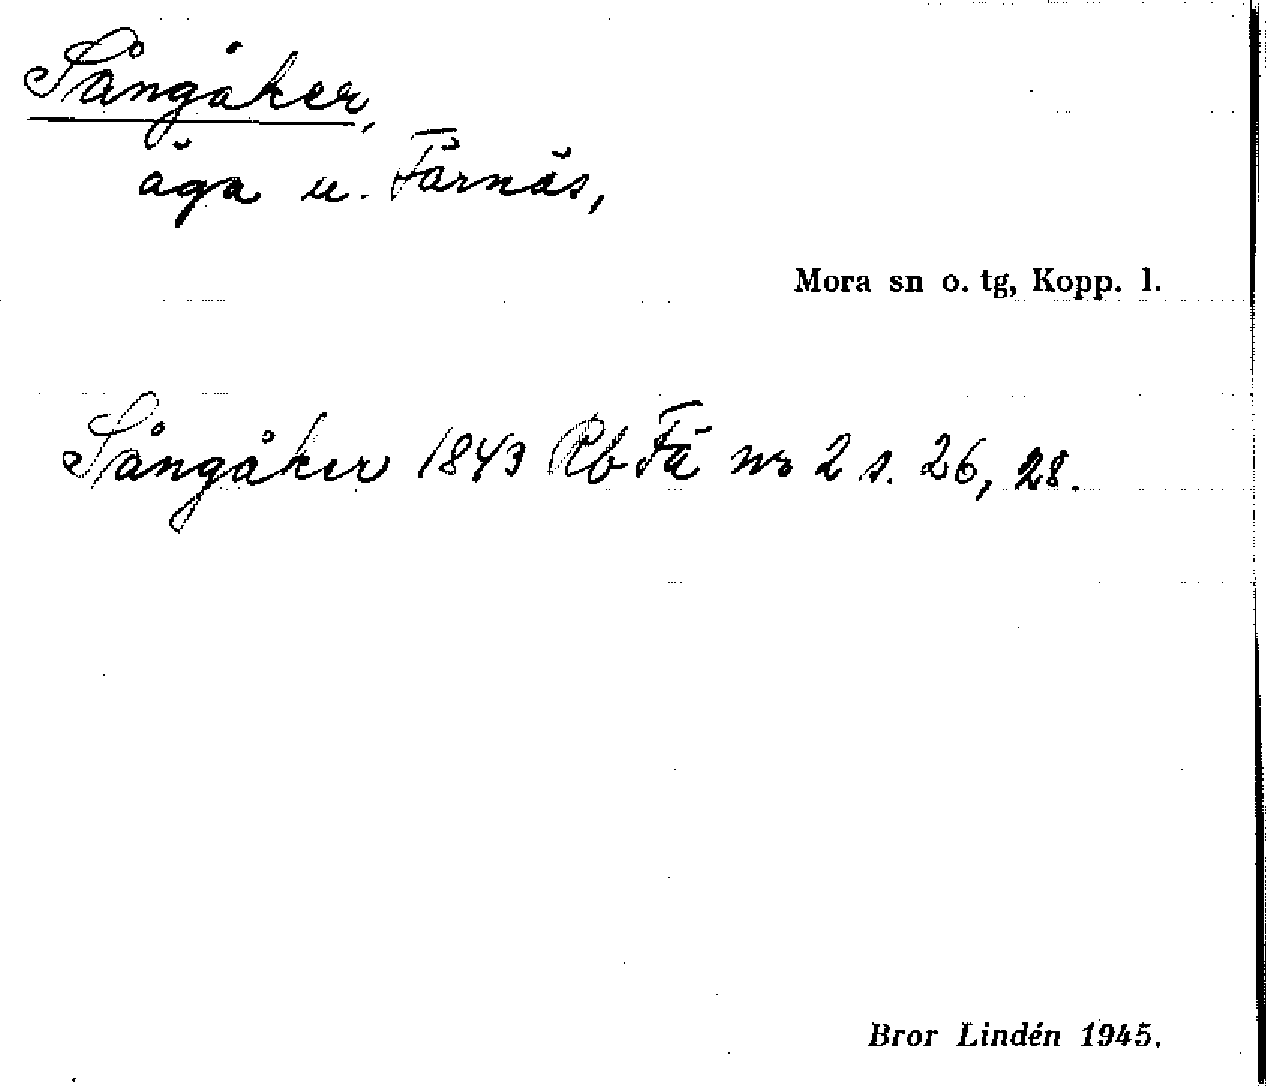 Sångåker,
äga u. Färnäs,
Mora sn o. tg, Kopp. l.
Sångåker 1843 Rb Fä nr 2 s. 26, 28.
Bror Lindén 1945.